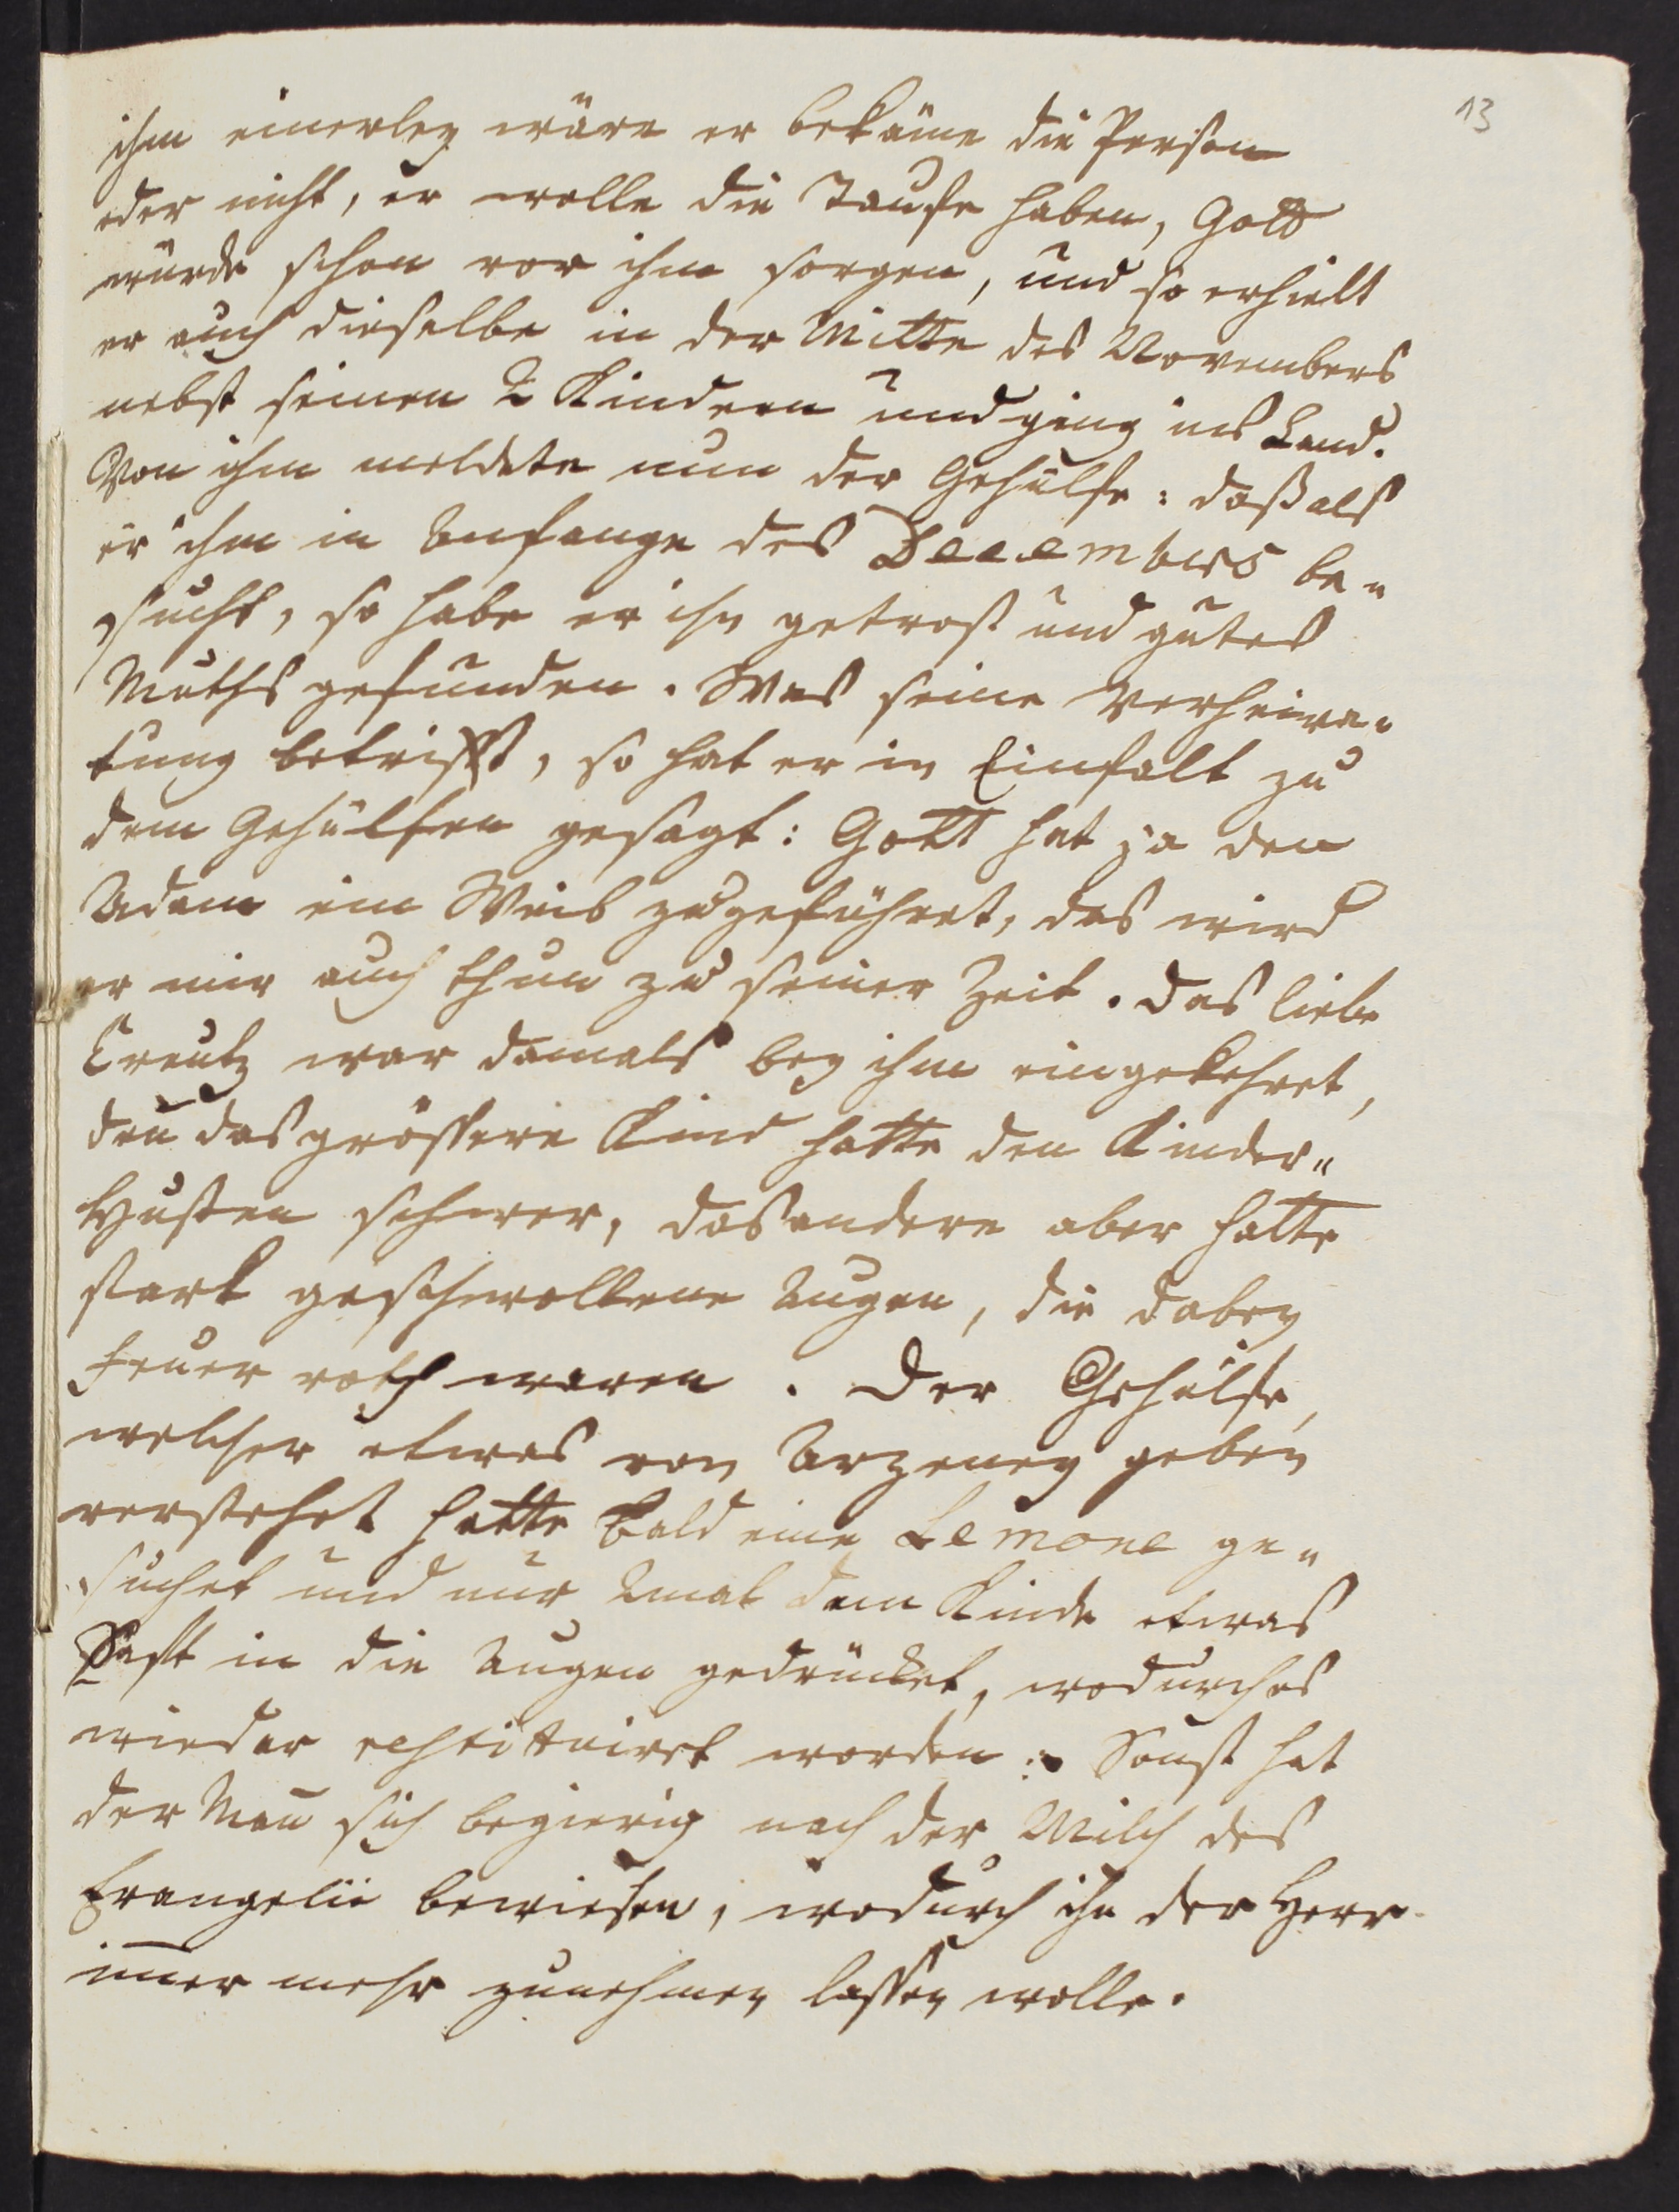 13
ihm einerley wäre er bekäme die Person
oder nicht, er wolle die Taufe haben, Gott
würde schon vor ihm sorgen, und so erhielt
er auch dieselbe in der Mitte des Novembers
nebst seinen 2 Kindern und ging ins Land.
Von ihm meldete nun der Gehülfe: daß als
er ihm in Anfange des Decembers be„
sucht, so habe er ihn getrost und gutes
Muths gefunden. Was seine Verheira„
tung betrifft, so hat er in Einfalt zu
dem Gehülfen gesagt: Gott hat ja den
Adam ein Weib zugeführet, das wird
er mir auch thun zu seiner Zeit. Das liebe
Creutz war damals bey ihm eingekehret,
deñ das grössere Kind hatte den Kinder„
Husten schwer, das andere aber hatte
stark geschwollene Augen, die dabey
feuer roth waren. Der Gehülfe,
welcher etwas von Arzeney geben
verstehet hatte bald eine Lemone ge„
suchet und nur 2mal dem Kinde etwas
Saft in die Augen gedrücket, wodurch es
wieder restituiret worden. Sonst hat
der Mañ sich begierig nach der Milch des
Evangelii bewiesen, wodurch ihn der Herr
im̄er mehr zunehmen lassen wolle.